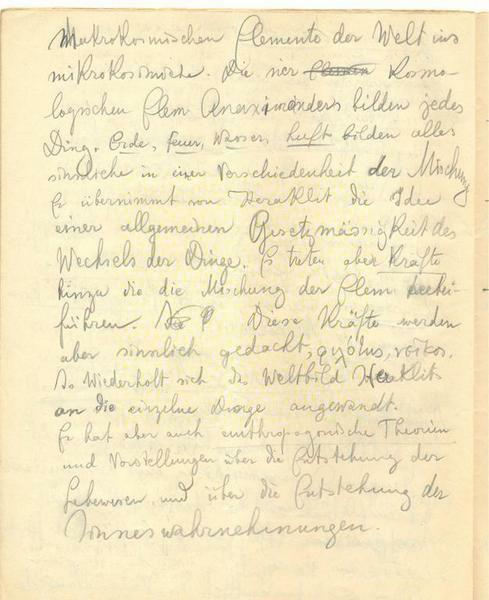 Makrokosmischen Elemente der Welt ins
mikrokosmische. Die vier Kosmo-
logischen Elem. Anaximanders bilden jedes
Ding. Erde, Feuer, Wasser, Luft bilden alles
sinnliche in einer Verschiedenheit der Mischung
Er übernimmt von Heraklit die Idee
einer allgemeinen Gesetzmässigkeit des
Wechsels der Dinge. Es treten aber Kräfte
hinzu die die Mischung der Elem
führen. Diese Kräfte werden
aber sinnlich gedacht,
So Wiederholt sich das Weltbild Heraklits
an die einzelne Dinge angewandt.
Er hat aber auch Theorien
und Vorstellungen über die Entstehung der
Lebewesen und über die Entstehung der
Sinneswahrnehmungen.